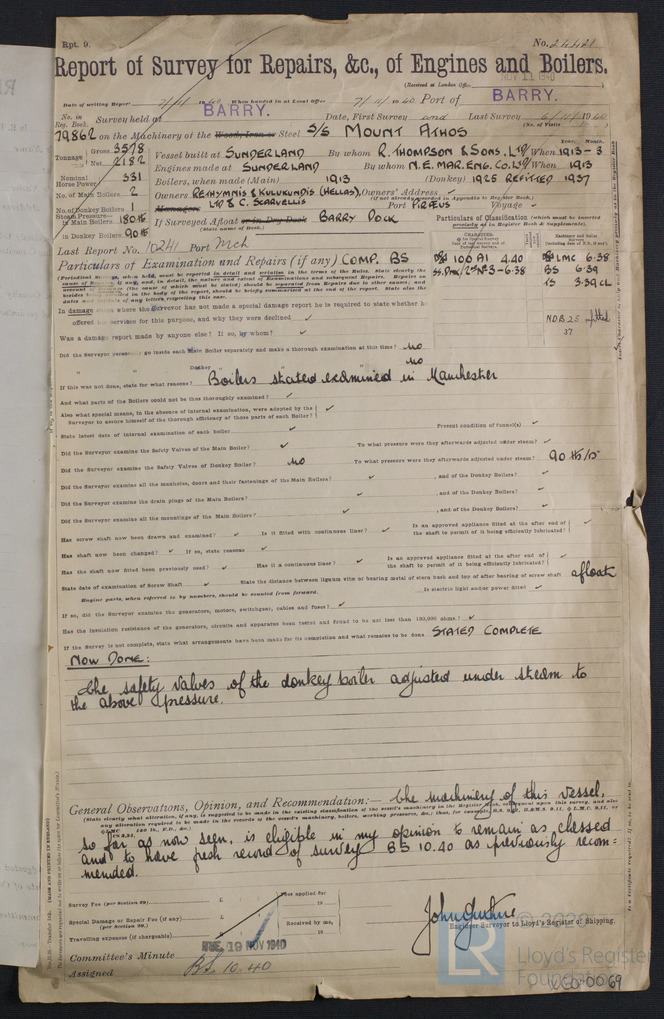 Rpt. 9.
No. 24421
Report of Survey for Repairs, &c., of Engines and Boilers.
(Received at London Office
NOV 11 1940
Date of writing Report 7/11 1940 When handed in at Local Office 7/11/1940 Port of BARRY.
No. in Reg. Book. Survey held at BARRY. Date, First Survey and Last Survey 6/11/1940
(No. of Visits
79862 on the Machinery of the Wood, Iron or Steel S/S MOUNT ATHOS
Tonnage Gross 3578
Net 2182
Vessel built at SUNDERLAND By whom R. THOMPSON & SONS. LTD When 1913-3
Year. Month.
Engines made at SUNDERLAND By whom N.E. MAR. ENG. CO. LTD When 1913
Nominal Horse Power 331
Boilers, when made (Main) 1913 (Donkey) 1925 REFITTED 1937
No. of Main Boilers 2
Owners RETHYMNIS & KULUKUNDIS (HELLAS), Owners' Address
(if not already recorded in Appendix to Register Book.)
No. of Donkey Boilers 1
Managers LTD & C. SCARVELLIS Port PIRÆUS Voyage
Steam Pressure in Main Boilers 180 lb
in Donkey Boilers 90 lb
If Surveyed Afloat or in Dry Dock BARRY DOCK
(State name of Dock.)
Particulars of Classification (which must be inserted precisely as in Register Book & Supplements).
Last Report No. 10241 Port Mch
Particulars of Examination and Repairs (if any) COMP. BS
100 A1 4.40
LMC 6.38
SS. No 3-6.38
BS 6.39
TS 3.39 CL
NDB 25 fitted
37
In damage cases where the Surveyor has not made a special damage report he is required to state whether he
offered his services for this purpose, and why they were declined
Was a damage report made by anyone else? If so, by whom?
Did the Surveyor personally go inside each Main Boiler separately and make a thorough examination at this time? no
" " Donkey " " " " " no
If this was not done, state for what reasons? Boilers stated examined in Manchester
And what parts of the Boilers could not be thus thoroughly examined?
Also what special means, in the absence of internal examination, were adopted by the
Surveyor to assure himself of the thorough efficiency of those parts of each Boiler?
State latest date of internal examination of each boiler
Present condition of funnel(s)
Did the Surveyor examine the Safety Valves of the Main Boiler? To what pressure were they afterwards adjusted under steam?
Did the Surveyor examine the Safety Valves of Donkey Boiler? no To what pressure were they afterwards adjusted under steam? 90 lb/□"
Did the Surveyor examine all the manholes, doors and their fastenings of the Main Boilers? , and of the Donkey Boilers?
Did the Surveyor examine the drain plugs of the Main Boilers? , and of the Donkey Boilers?
Did the Surveyor examine all the mountings of the Main Boilers? , and of the Donkey Boilers?
Has screw shaft now been drawn and examined? Is it fitted with continuous liner? Is an approved appliance fitted at the after end of the shaft to permit of it being efficiently lubricated?
Has shaft now been changed? If so, state reasons
Has the shaft now fitted been previously used? Has it a continuous liner? Is an approved appliance fitted at the after end of the shaft to permit of it being efficiently lubricated?
State date of examination of Screw Shaft State the distance between lignum vitæ or bearing metal of stern bush and top of after bearing of screw shaft afloat
Engine parts, when referred to by numbers, should be counted from forward.
Is electric light and/or power fitted
If so, did the Surveyor examine the generators, motors, switchgear, cables and fuses?
Has the insulation resistance of the generators, circuits and apparatus been tested and found to be not less than 100,000 ohms?
If the Survey is not complete, state what arrangements have been made for its completion and what remains to be done STATED COMPLETE
NOW DONE:
The safety valves of the donkey boiler adjusted under steam to
the above pressure.
General Observations, Opinion, and Recommendation:— The machinery of this vessel,
so far as now seen, is eligible in my opinion to remain as classed
and to have fresh record of survey BS 10.40 as previously recom=
mended.
Survey Fee (per Section 29) £ Fees applied for
Special Damage or Repair Fee (if any) (per Section 29.) £
Received by me,
Travelling expenses (if chargeable) £
John Guthrie
Engineer Surveyor to Lloyd's Register of Shipping.
TUE. 19 NOV 1940
Committee's Minute
Assigned BS. 10.40
© 2020
LR
Lloyd's Register
Foundation